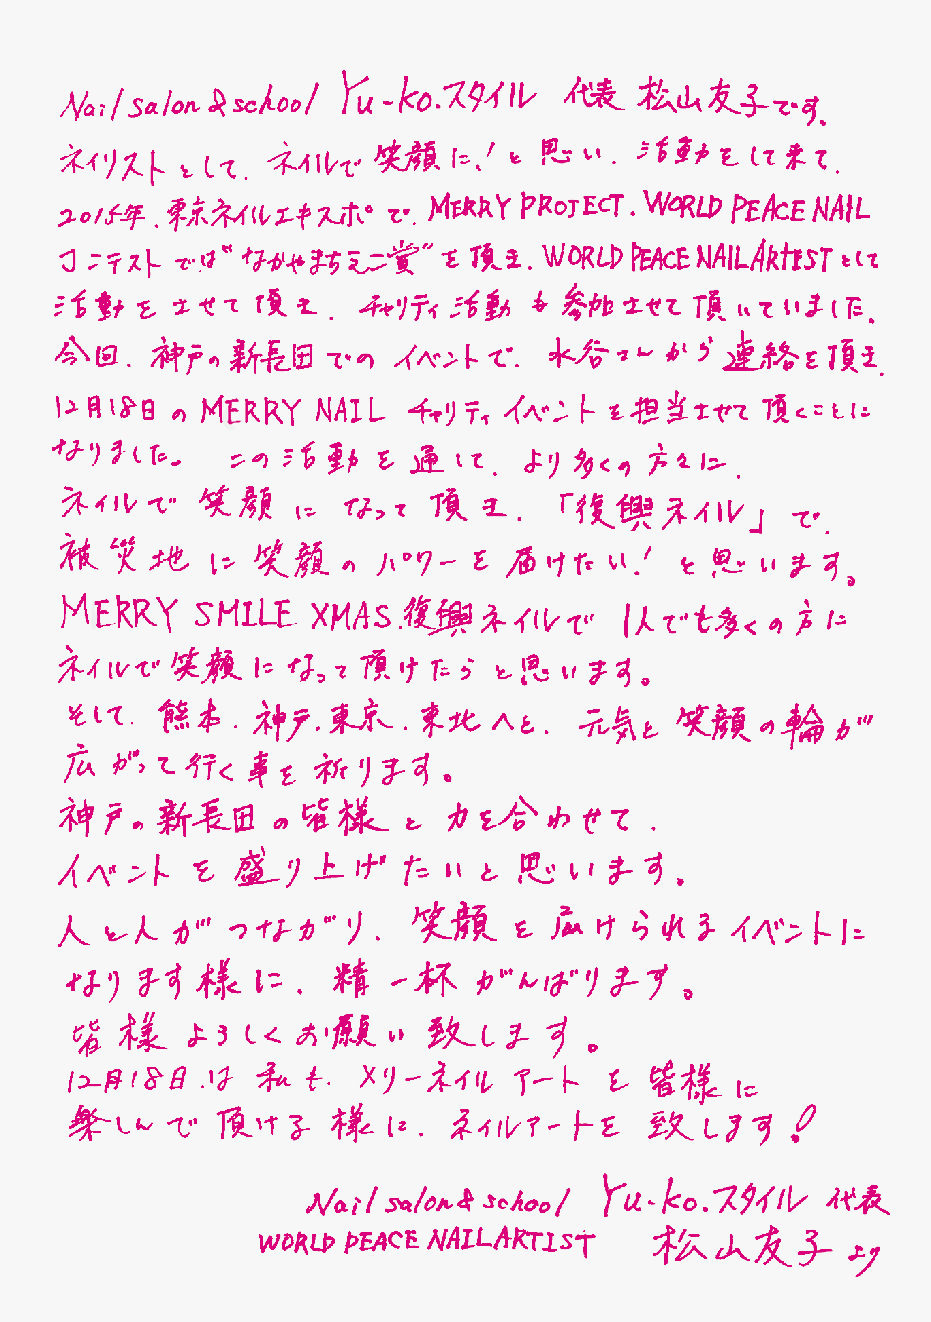 Nail salon & school Yu-ko.スタイル 代表 松山友子です。
ネイリストとして、ネイルで笑顔に!と思い、活動をして来て、
2015年、東京ネイルエキスポで、MERRY PROJECT. WORLD PEACE NAIL
コンテストでは"なかやまちえこ賞"を頂き、WORLD PEACE NAIL ARTISTとして
活動をさせて頂き、チャリティ活動も参加させて頂いていました。
今回、神戸の新長田でのイベントで、水谷さんから連絡を頂き、
12月18日のMERRY NAIL チャリティイベントを担当させて頂くことに
なりました。この活動を通して、より多くの方々に、
ネイルで笑顔になって頂き、「復興ネイル」で、
被災地に笑顔のパワーを届けたい!と思います。
MERRY SMILE XMAS.復興ネイルで1人でも多くの方に
ネイルで笑顔になって頂けたらと思います。
そして、熊本、神戸、東京、東北へと、元気と笑顔の輪が
広がって行く事を祈ります。
神戸の新長田の皆様と力を合わせて、
イベントを盛り上げたいと思います。
人と人がつながり、笑顔を広げられるイベントに
なります様に、精一杯がんばります。
皆様よろしくお願い致します。
12月18日は私も、メリーネイルアートを皆様に
楽しんで頂ける様に、ネイルアートを致します!
Nail salon & school Yu-ko.スタイル 代表
WORLD PEACE NAIL ARTIST 松山友子より